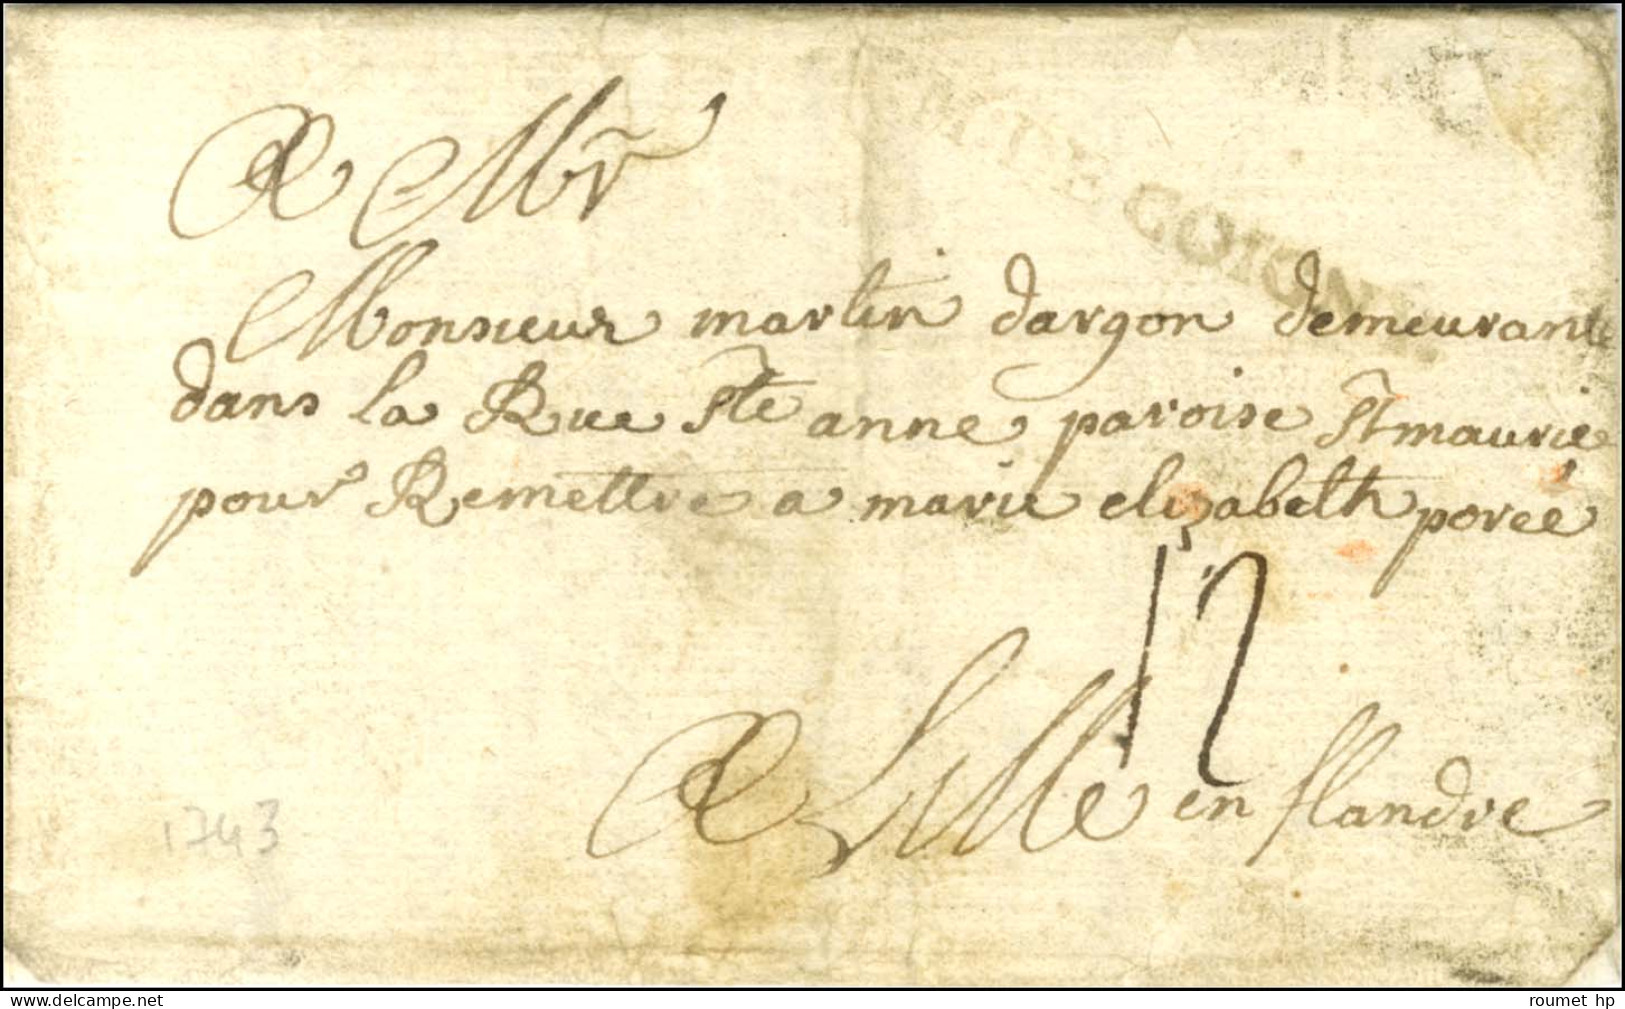 A Mr
Monsieur martin dargon demeurante
dans la Rue Ste anne paroise St maurie
pour Remettre a marie elizabeth poreé
12
A Lille en flandre
1743
www.delcampe.net
roumet hp